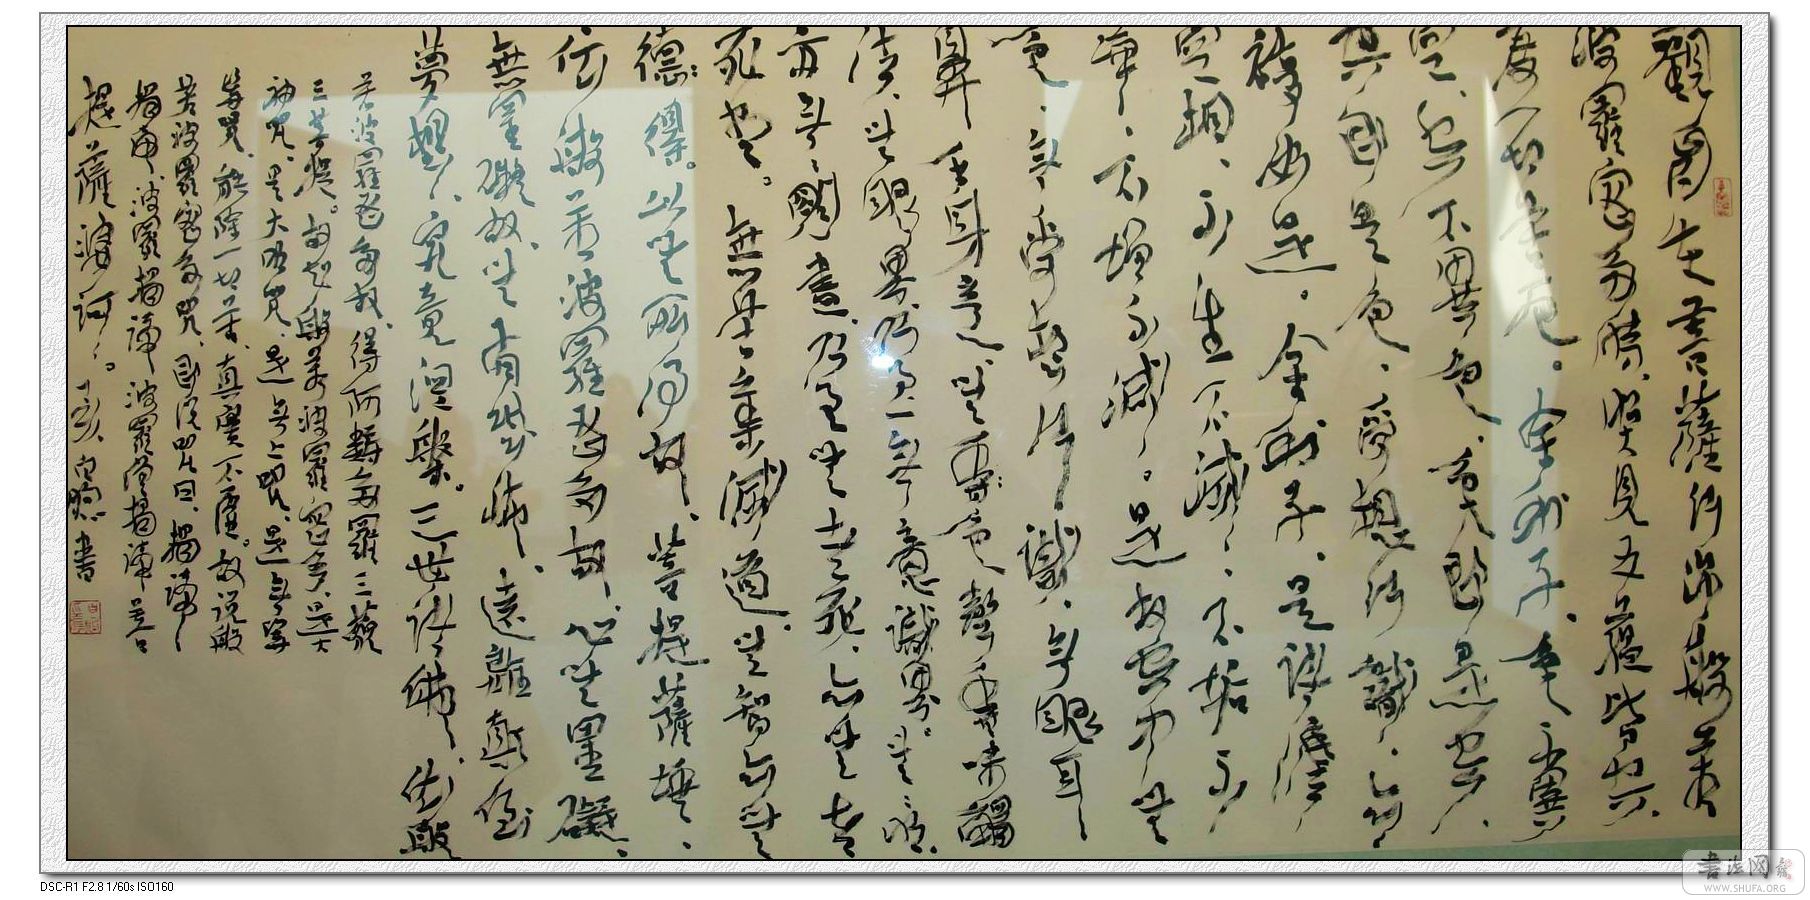 觀自在菩薩行深般若
波羅密多時，照見五蘊皆空，
度一切苦厄。舍利子，色不異
空，空不異色，色即是空，
空即是色，受想行識，亦
復如是。舍利子，是諸法
空相，不生不滅，不垢不
淨，不增不減。是故空中無
色，無受想行識，無眼耳
鼻舌身意，無香色聲香味觸
法，無眼界，乃至無意識界。無無明，
亦無無明盡，乃至無老死，亦無老
死盡。無苦集滅道，無智亦無
德得。以無所得故，菩提薩埵，
依般若波羅密多故，心無罣礙，
無罣礙故，無有恐怖，遠離顛倒
夢想，究竟涅槃。三世諸佛，依般
若波羅密多故，得阿耨多羅三藐
三菩提。故知般若波羅密多，是大
神咒，是大明咒，是無上咒，是無等
等咒，能除一切苦，真實不虛。故說般
若波羅密多咒，即說咒曰，揭諦
揭諦，波羅揭諦，波羅僧揭諦，菩
提薩婆訶。丁亥 白書
DSC-R1 F2.8 1/60s ISO160
書法网
WWW.SHUFA.ORG